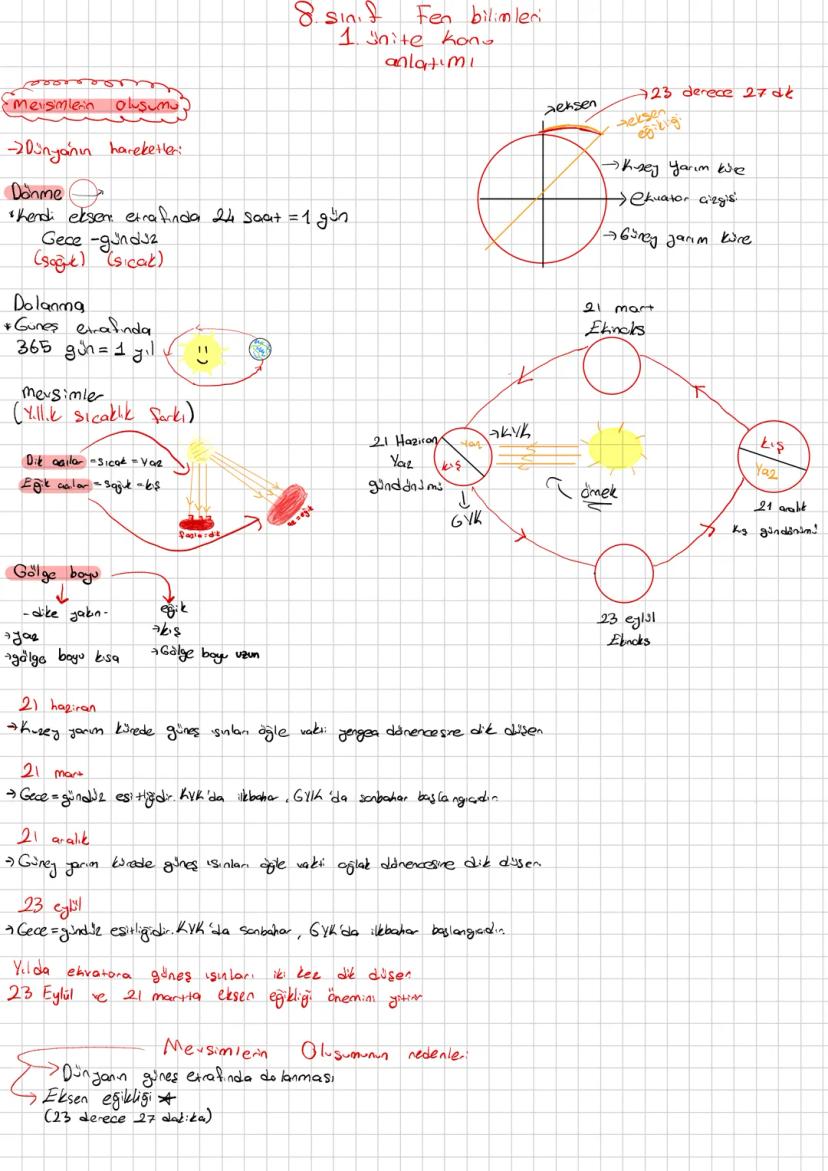 8. sınıf Fen bilimleri
1. ünite konu
anlatımı
Mevsimlerin oluşumu
→Dünyanın hareketleri
Dönme
*Kendi ekseni etrafında 24 saat = 1 gün
Gece - gündüz
(soğuk) (sıcak)
→eksen
→23 derece 27 dk
→eksen eğikliği
→Kuzey yarım küre
→Ekvator çizgisi
→Güney yarım küre
Dolanma
*Güneş etrafında
365 gün = 1 yıl
mevsimler
(Yıllık sıcaklık farkı)
Dik açılar = sıcak = yaz
Eğik açılar = soğuk = kış
fazla = dik
az = eğik
21 mart
Ekinoks
21 Haziran
Yaz
gündönümü
yaz
kış
→KYK
GYK
örnek
kış
Yaz
21 aralık
Kış gündönümü
23 eylül
Ekinoks
Gölge boyu
-dike yakın-
→yaz
→gölge boyu kısa
eğik
→kış
→Gölge boyu uzun
21 haziran
→Kuzey yarım kürede güneş ışınları öğle vakti yengeç dönencesine dik düşer
21 mart
→Gece = gündüz eşitliğidir. KYK'da ilkbahar, GYK'da sonbahar başlangıcıdır
21 aralık
→Güney yarım kürede güneş ışınları öğle vakti oğlak dönencesine dik düşer
23 eylül
→Gece = gündüz eşitliğidir. KYK'da sonbahar, GYK'da ilkbahar başlangıcıdır.
Yılda ekvatora güneş ışınları iki kez dik düşer
23 Eylül ve 21 martta eksen eğikliği önemini yitirir
Mevsimlerin Oluşumunun nedenleri
→Dünyanın güneş etrafında dolanması
→Eksen eğikliği *
(23 derece 27 dakika)